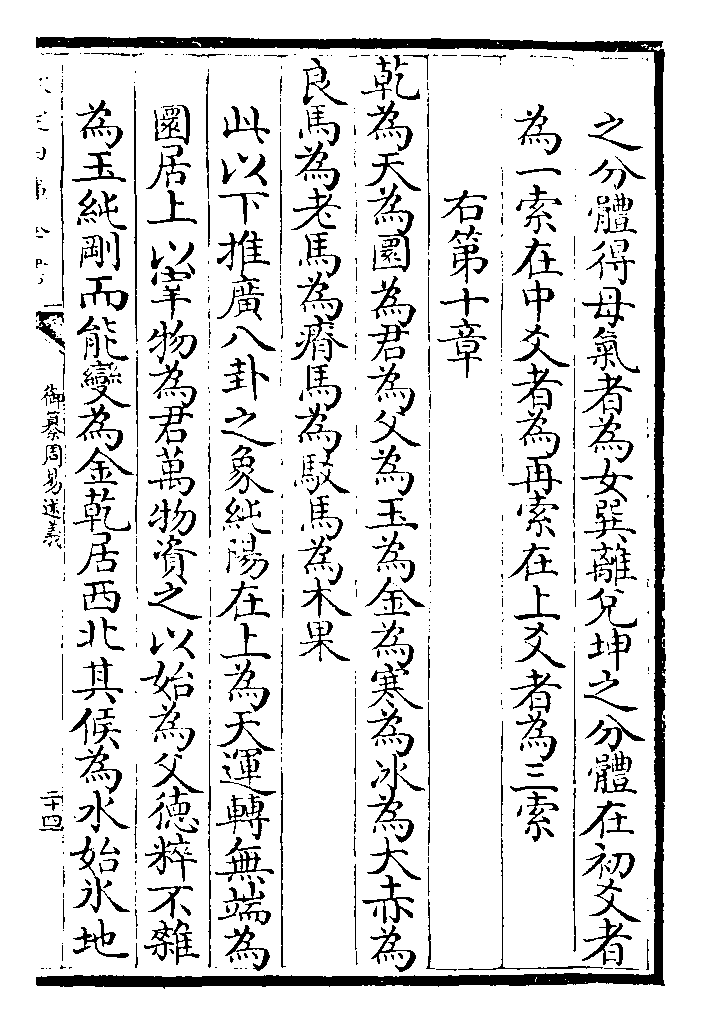 之分體得母氣者為女巽離兌坤之分體在初爻者
為一索在中爻者為再索在上爻者為三索
右第十章
乾為天為圜為君為父為玉為金為寒為冰為大赤為
良馬為老馬為瘠馬為駁馬為木果
此以下推廣八卦之象純陽在上為天運轉無端為
圜居上以宰物為君萬物資之以始為父德粹不雜
為玉純剛而能變為金乾居西北其候為水始氷地
御纂周易述義
二十四